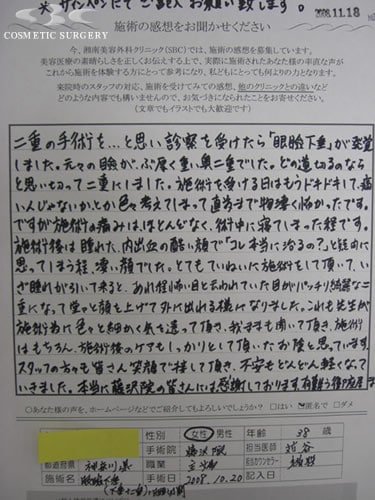 ※サインペンにてご記入お願い致します。
2008.11.18
COSMETIC SURGERY
施術の感想をお聞かせください
今、湘南美容外科クリニック(SBC)では、施術の感想を募集しています。
美容医療の素晴らしさを正しくお伝えする上で、実際に施術されたあなた様の率直な声が
これから施術を体験する方にとって参考になり、私どもにとっても何よりの力となります。
来院時のスタッフの対応、施術を受けてみての感想、他のクリニックとの違いなど
どのような内容でも構いませんので、お気づきになられたことをお寄せください。
(文章でもイラストでも大歓迎です)
二重の手術を…と思い診察を受けたら「眼瞼下垂」が発覚
しました。元々の瞼が、ぶ厚く重い奥二重でした。どの道切るのなら
と思い切って二重にしました。施術を受ける日はもうドキドキして、痛
いんじゃないかとか色々考えてしまって直前まで物凄く怖かったです。
ですが施術の痛みは、ほとんどなく、術中に寝てしまった程です。
施術後は腫れた、内出血の酷い顔で「コレ本当に治るの?」と疑問に
思ってしまう程、凄い顔でした。とてもていねいに施術をして頂いて、い
ざ腫れが引いて来ると、あれ程怖い目と云われていた目がパッチリ綺麗な二
重になって堂々と顔を上げて外に出れる様になりました。これも先生が
施術前に色々と細かく気を遣って頂き、我ままも聞いて頂き、施術
はもちろん、施術後のケアもしっかりとして頂いたお陰と思っています。
スタッフの方々も皆さん笑顔で接して頂き、不安もどんどん軽くなって
いきました。本当に藤沢院の皆さんには感謝しております。有難う御座居ます
○あなた様の声を、ホームページなどでご紹介してもよろしいでしょうか? □はい ☑匿名で □ダメ
性別 女性・男性 年齢 38歳
手術院 藤沢院 担当医師
都道府県 神奈川県 職業 主婦 担当カウンセラー
施術名 眼瞼下垂 記入日 2008.10.20